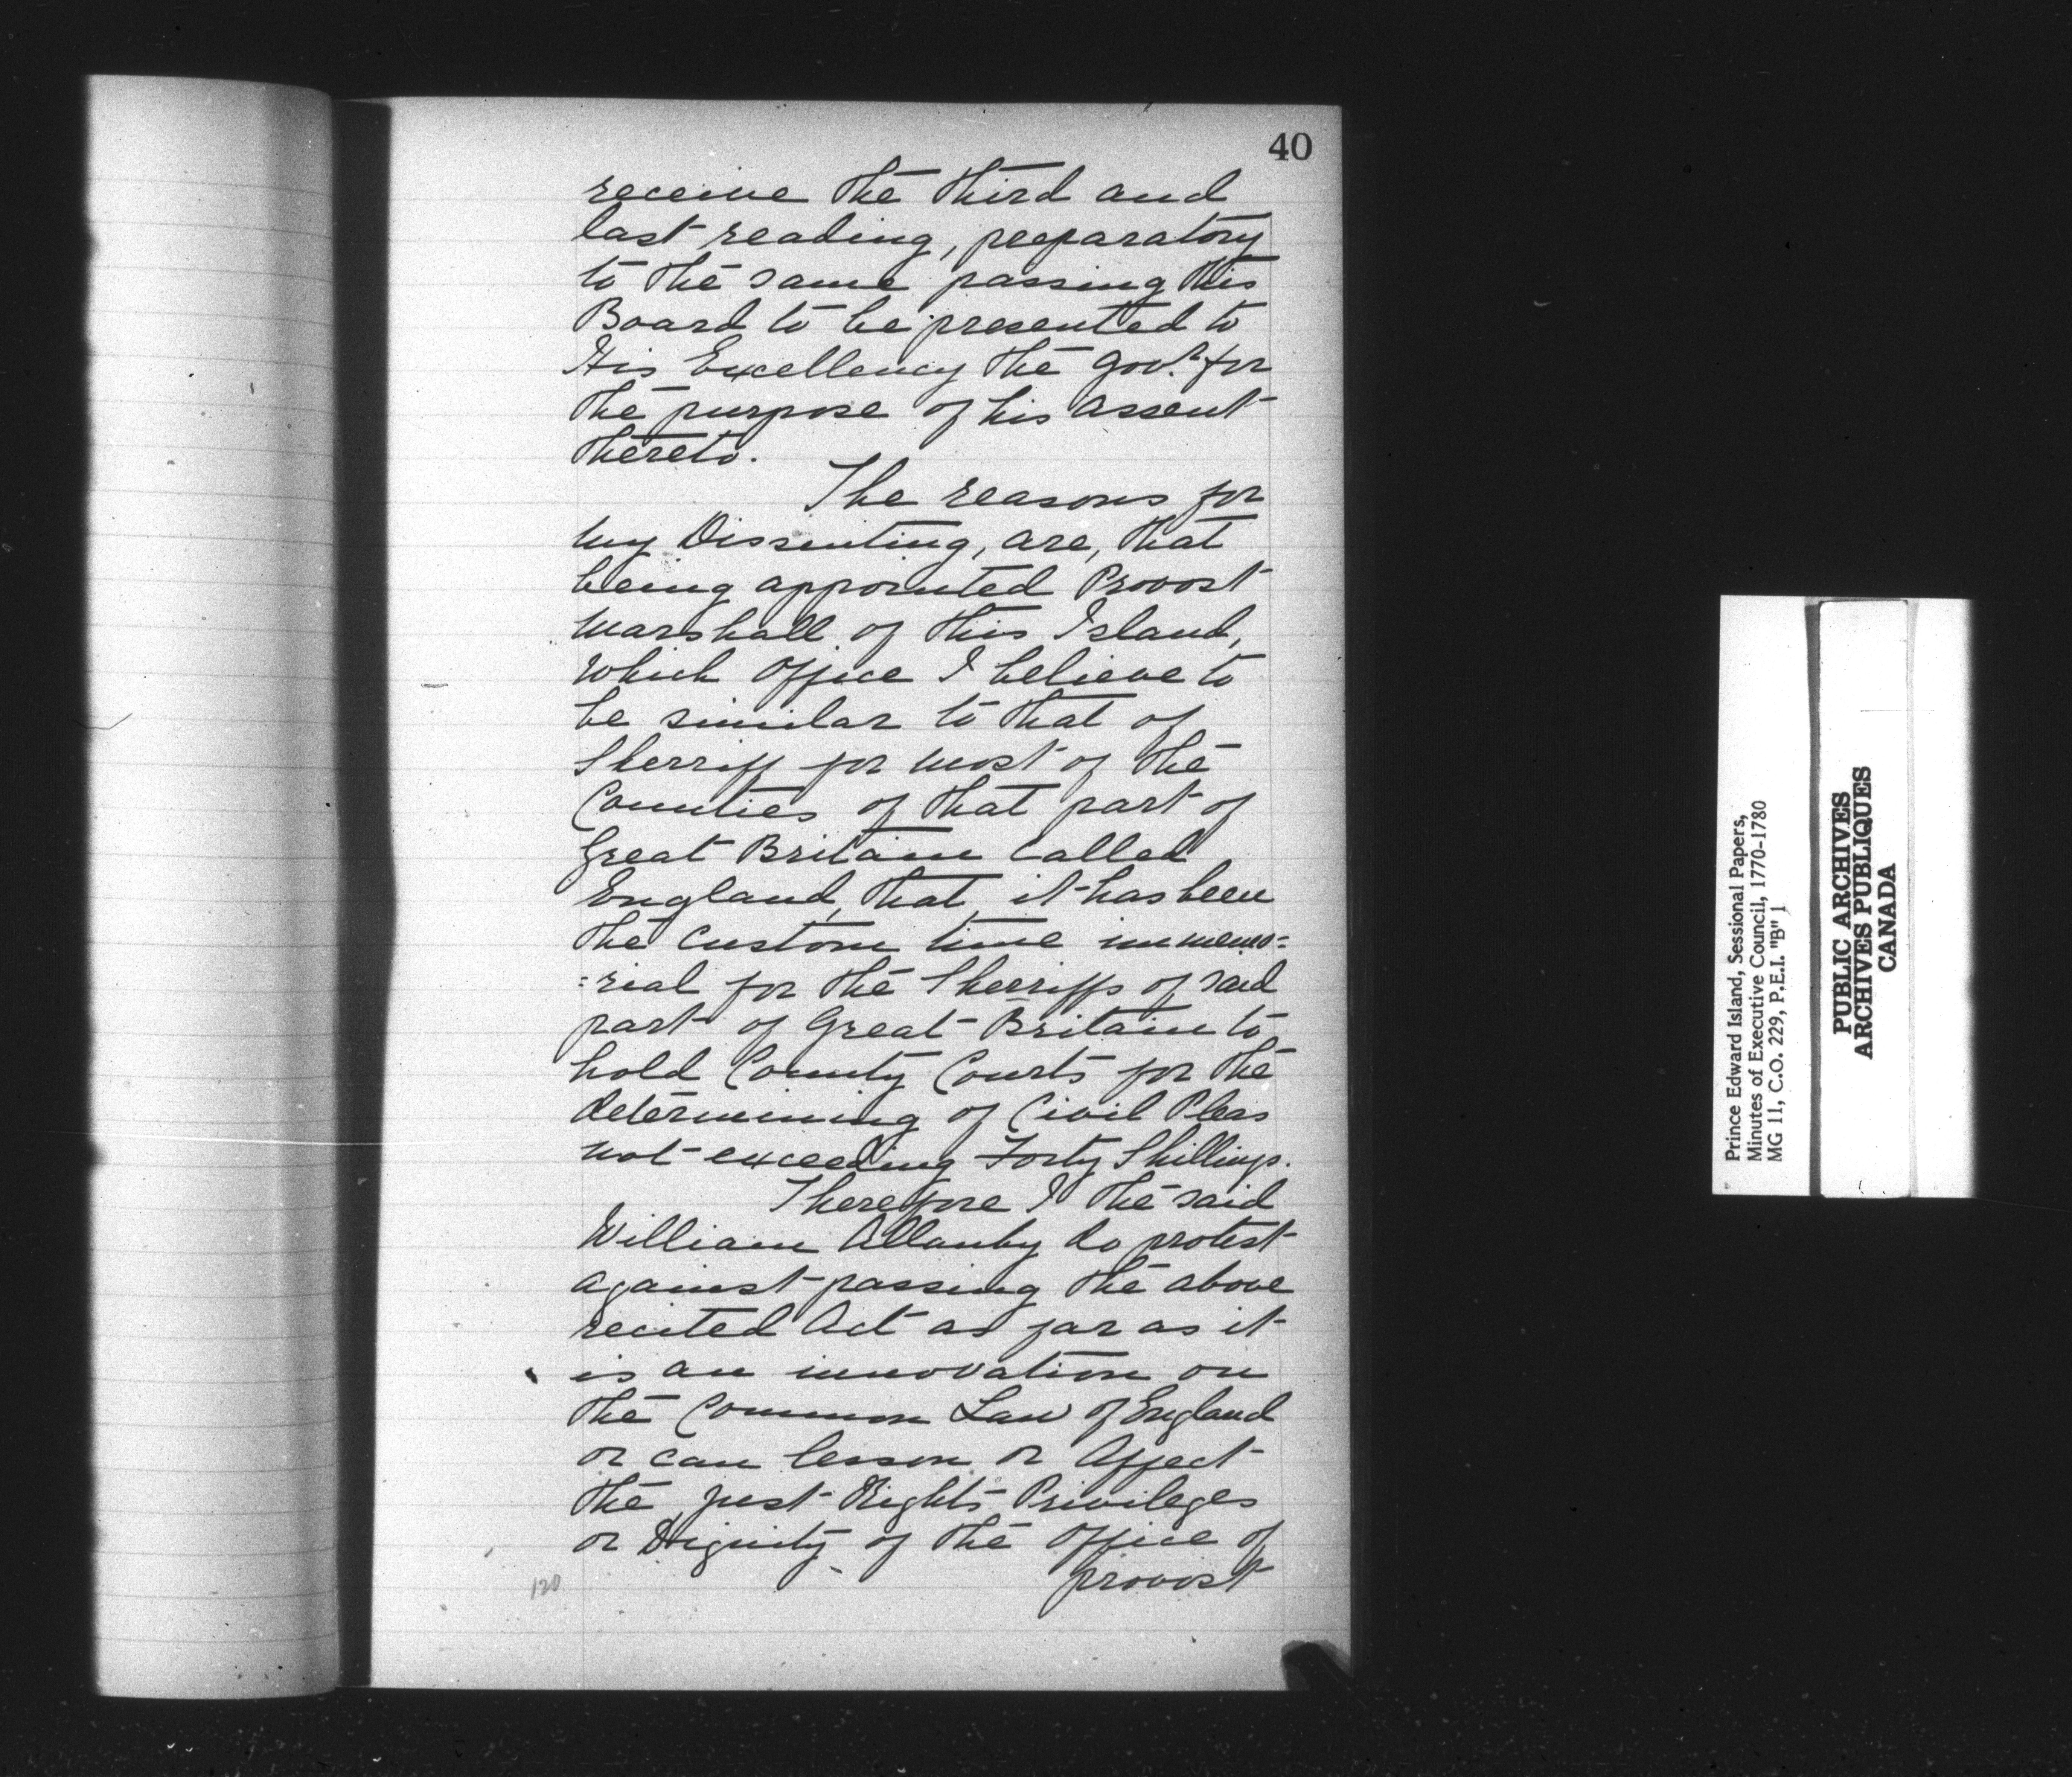 40
receive the third and
last reading, preparatory
to the same passing this
Board to be presented to
His Excellency the Gov.r for
the purpose of his assent
thereto.
The reasons for
my Dissenting, are, that
being appointed Provost
Marshall of this Island,
which Office I believe to
be similar to that of
Sherriff for most of the
Counties of that part of
Great Britain called
England, that it has been
the custom time immemo=
=rial for the Sherriffs of said
part of Great Britain to
hold County Courts for the
determining of Civil Pleas
not exceeding Forty Shillings.
Therefore I the said
William Allanby do protest
against passing the above
recited Act as far as it
is an innovation on
the Common Law of England
or can lesson or Affect
the just Rights Privileges
or Dignity of the Office of
provost
120
Prince Edward Island, Sessional Papers,
Minutes of Executive Council, 1770-1780
MG 11, C.O. 229, P.E.I. "B" 1
PUBLIC ARCHIVES
ARCHIVES PUBLIQUES
CANADA